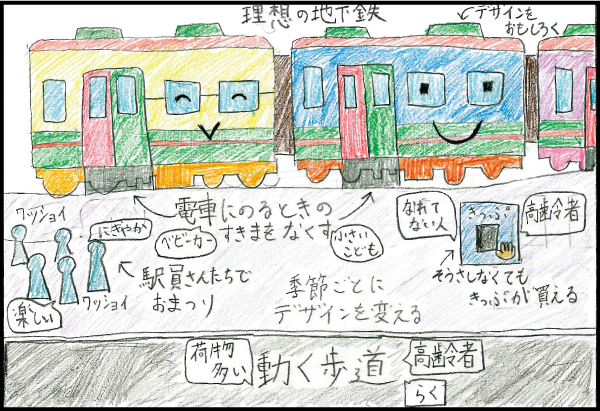 理想の地下鉄
デザインを
おもしろく
ワッショイ
にぎやか
楽しい
ワッショイ
駅員さんたちで
おまつり
電車にのるときの
すきまをなくす
ベビーカー
小さい
こども
季節ごとに
デザインを変える
なれて
ない人
きっぷ
高齢者
そうさしなくても
きっぷが買える
荷物
多い
動く歩道
高齢者
らく